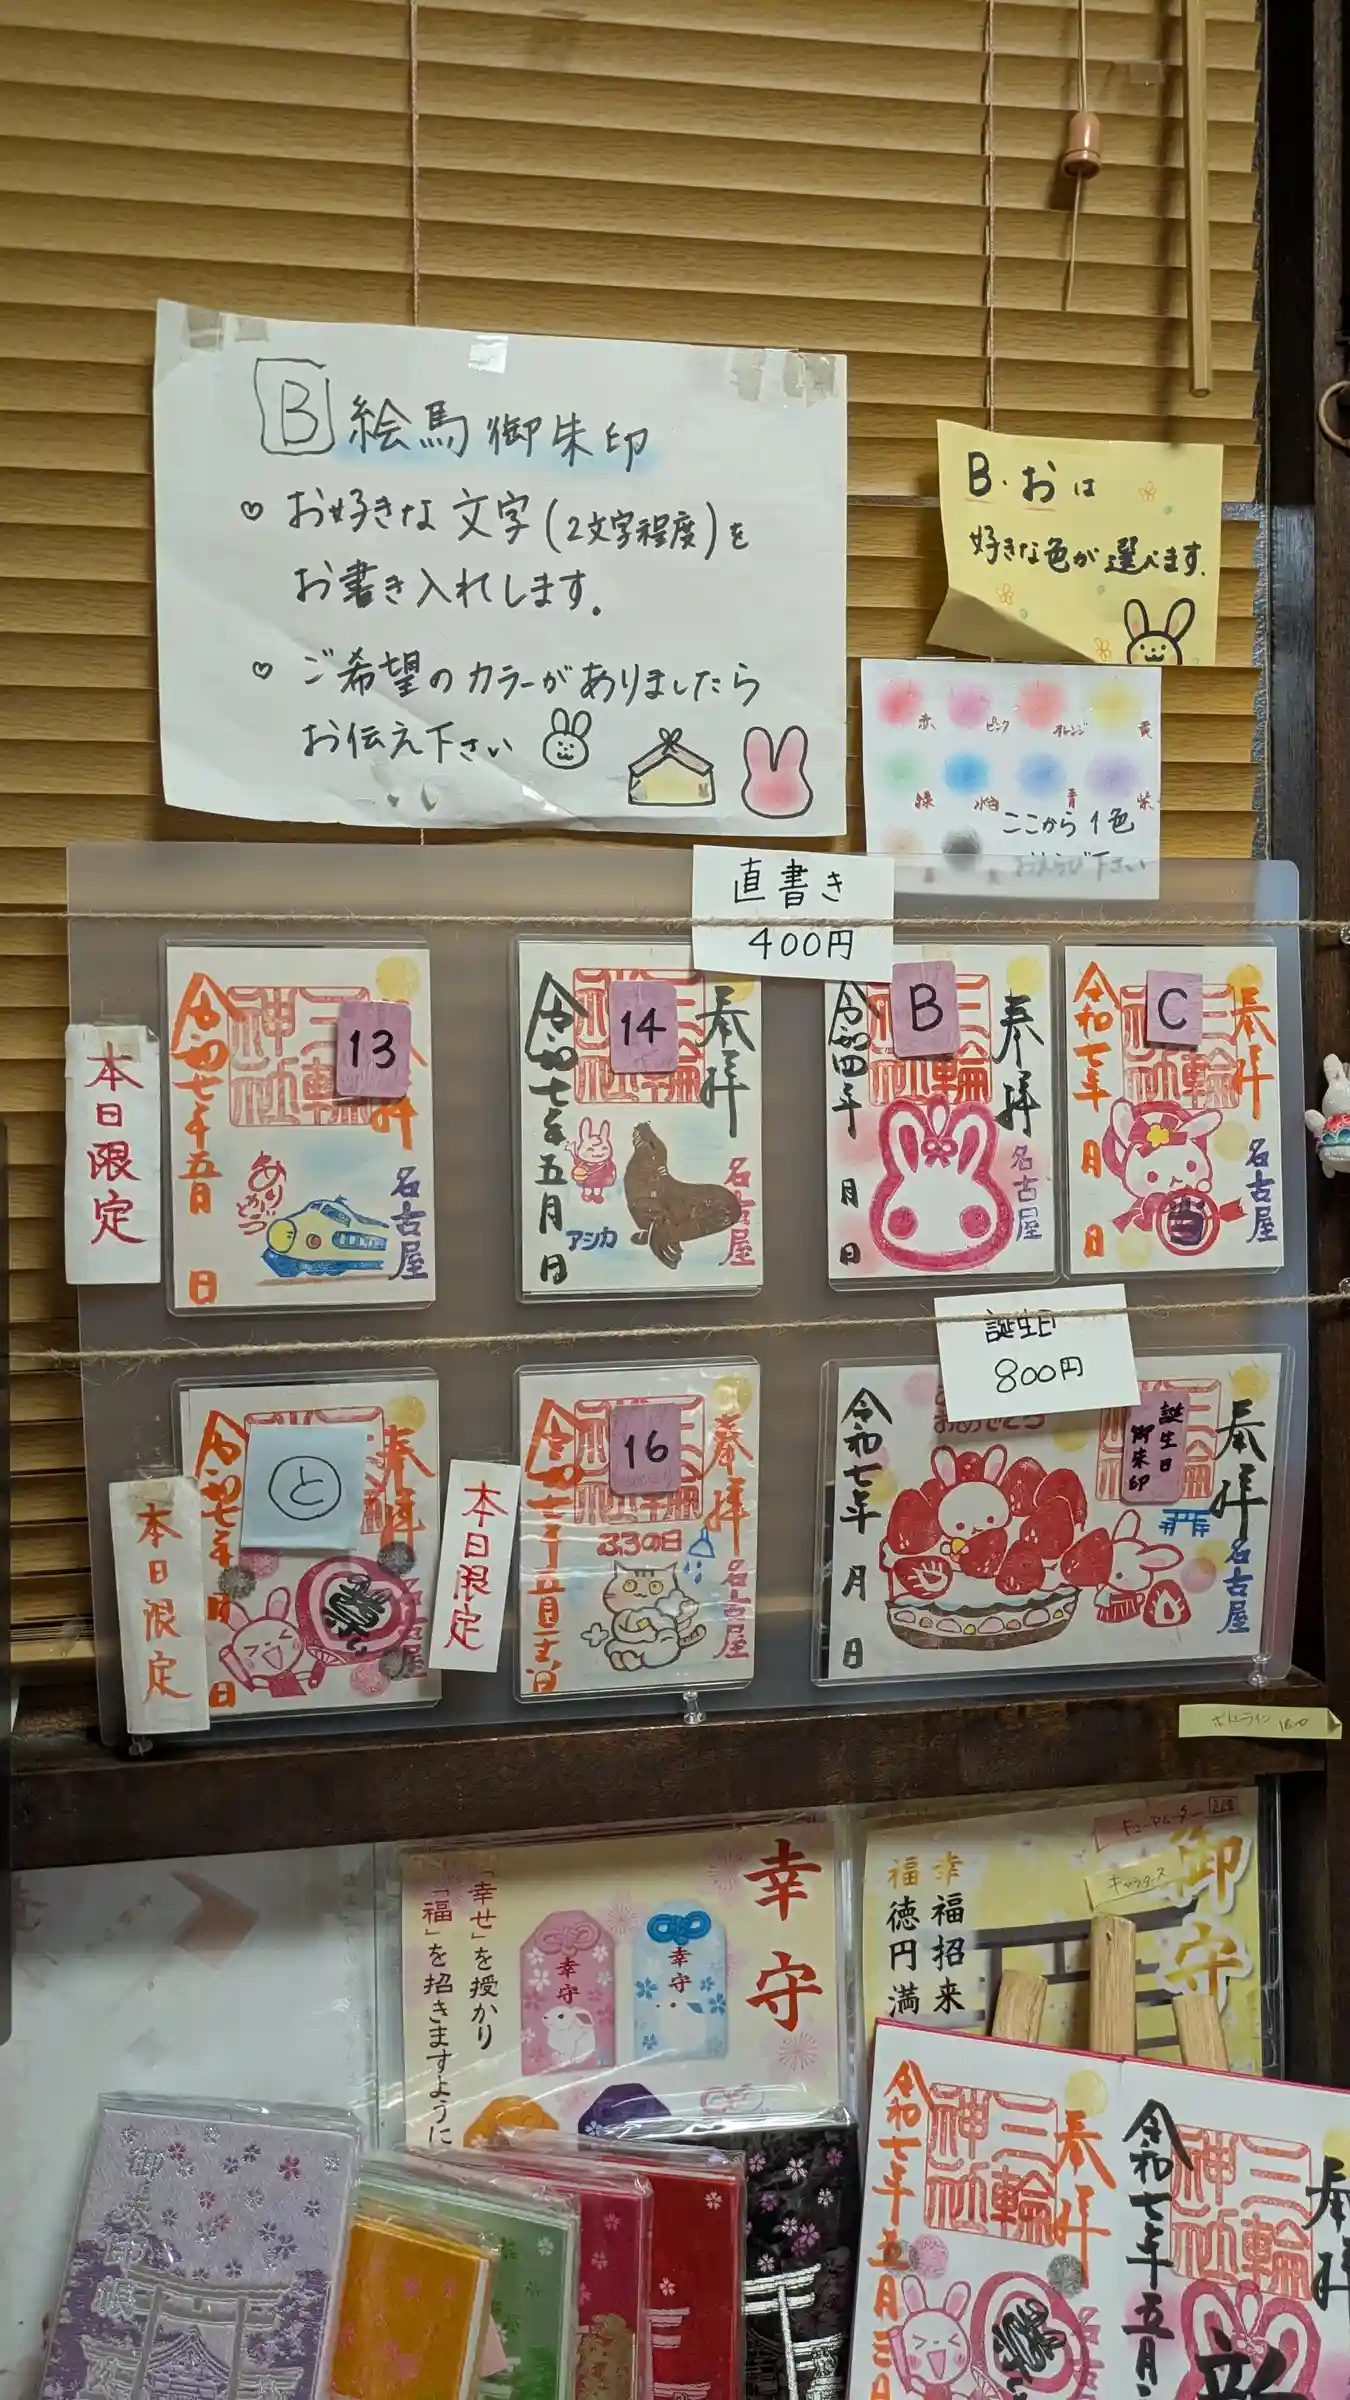 B 絵馬御朱印
♡ お好きな文字(2文字程度)を
お書き入れします。
♡ ご希望のカラーがありましたら
お伝え下さい
B・おは
好きな色が選べます.
赤 ピンク オレンジ 黄
緑 水色 青 紫
ここから1色
おえらび下さい
直書き
400円
本日限定
13
令和七年五月
日
三輪神社
ありがとう
名古屋
14
奉拝
三輪神社
令和七年五月
日
アシカ
名古屋
B
奉拝
令和四年
月
日
名古屋
C
奉拝
三輪神社
令和七年
月
日
名古屋
誕生日
800円
本日限定
と
奉拝
令和七年
月
日
名古屋
本日限定
16
奉拝
令和七年五月
日
名古屋
誕生日
御朱印
奉拝
令和七年
月
日
名古屋
幸守
「幸せ」を授かり
「福」を招きますように
幸守
幸守
御守
幸福招来
福徳円満
御朱印帳
奉拝
三輪神社
令和七年五月三日
奉拝
三輪神社
令和七年五月